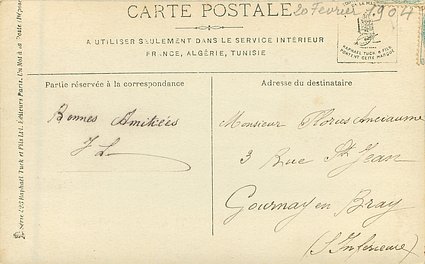 CARTE POSTALE
20 Fevrier 1904
A UTILISER SEULEMENT DANS LE SERVICE INTÉRIEUR
FRANCE, ALGÉRIE, TUNISIE
RAPHAEL TUCK & FILS
PORTENT CETTE MARQUE
Partie réservée à la correspondance
Adresse du destinataire
Bonnes Amitiées
Monsieur
3 Rue St Jean
Gournay en Bray
(S Inferieure)
Série
Raphael Tuck et Fils Ltd. Editeurs Paris.